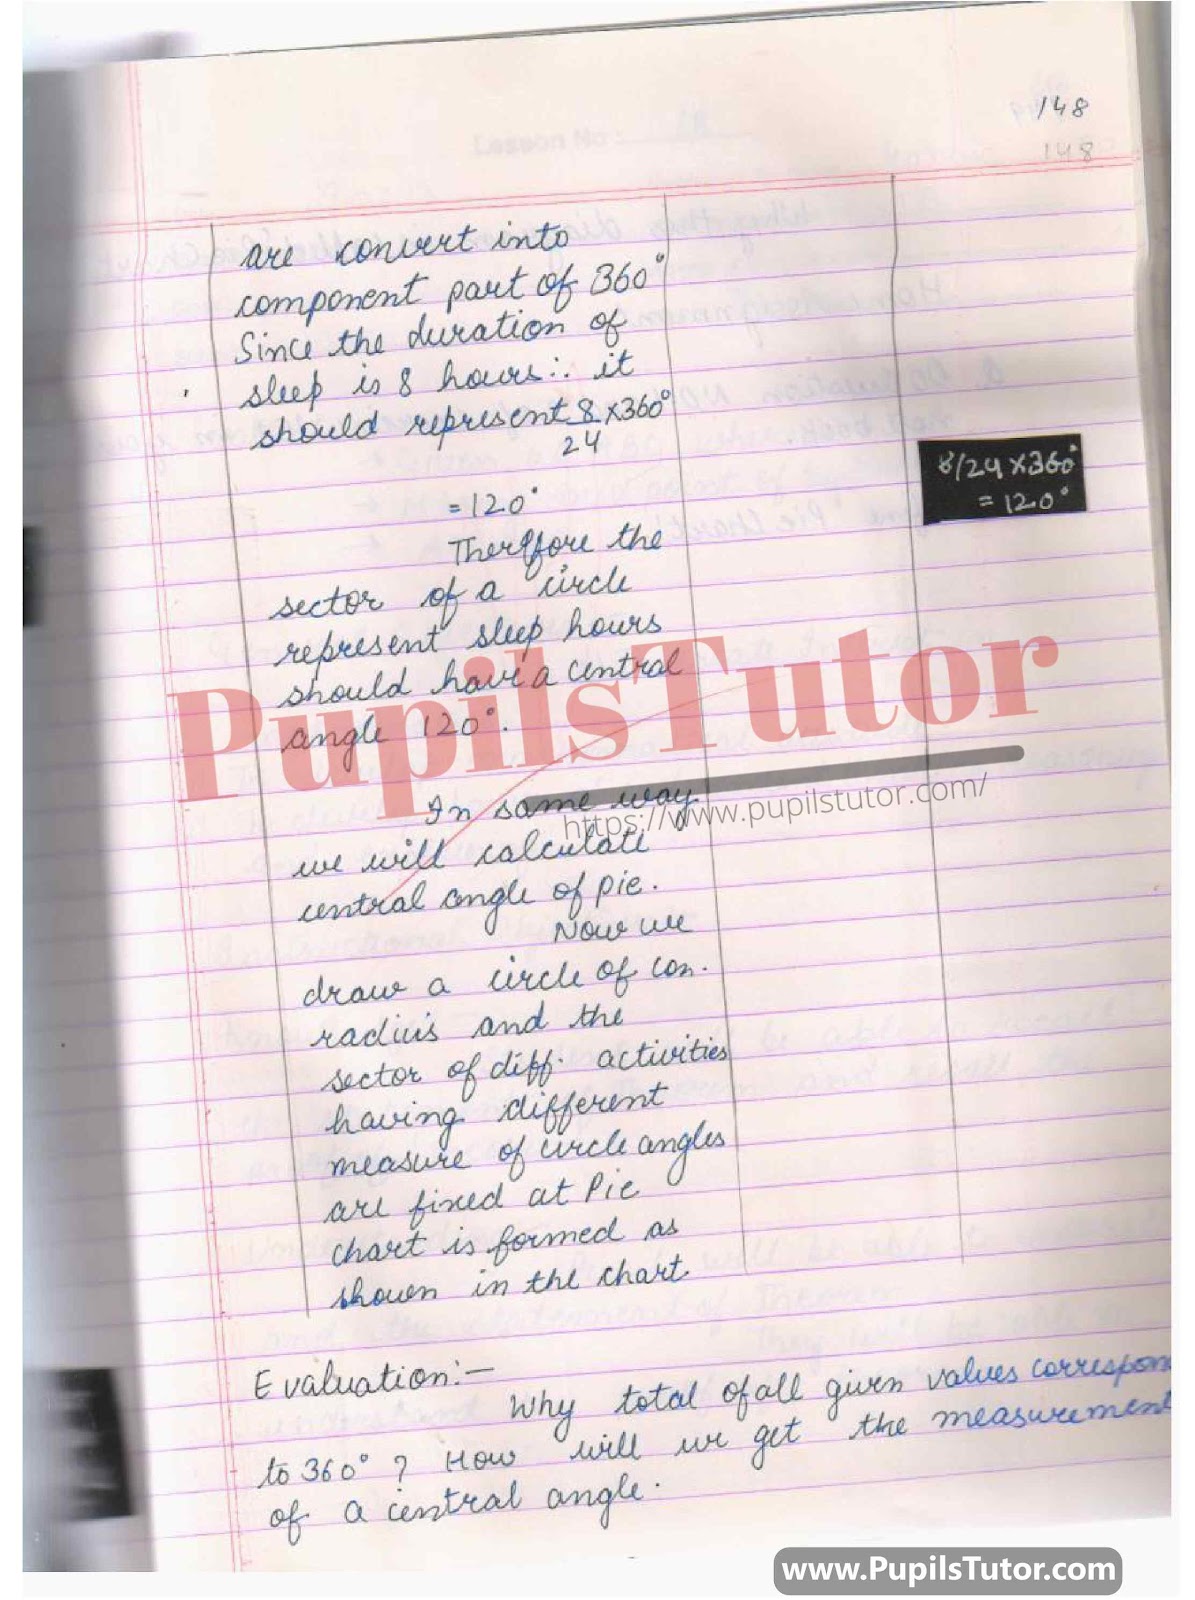 148
148
are convert into
component part of 360°
Since the duration of
sleep is 8 hours ∴ it
should represent 8/24 × 360°
8/24 × 360°
= 120°
= 120°
Therefore the
sector of a circle
represent sleep hours
should have a central
angle 120°.
PupilsTutor
https://www.pupilstutor.com/
In same way
we will calculate
central angle of pie.
Now we
draw a circle of con.
radius and the
sector of diff. activities
having different
measure of circle angles
are fixed at Pie
chart is formed as
shown in the chart
Evaluation:—
Why total of all given values correspon
to 360° ? How will we get the measurement
of a central angle.
www.PupilsTutor.com